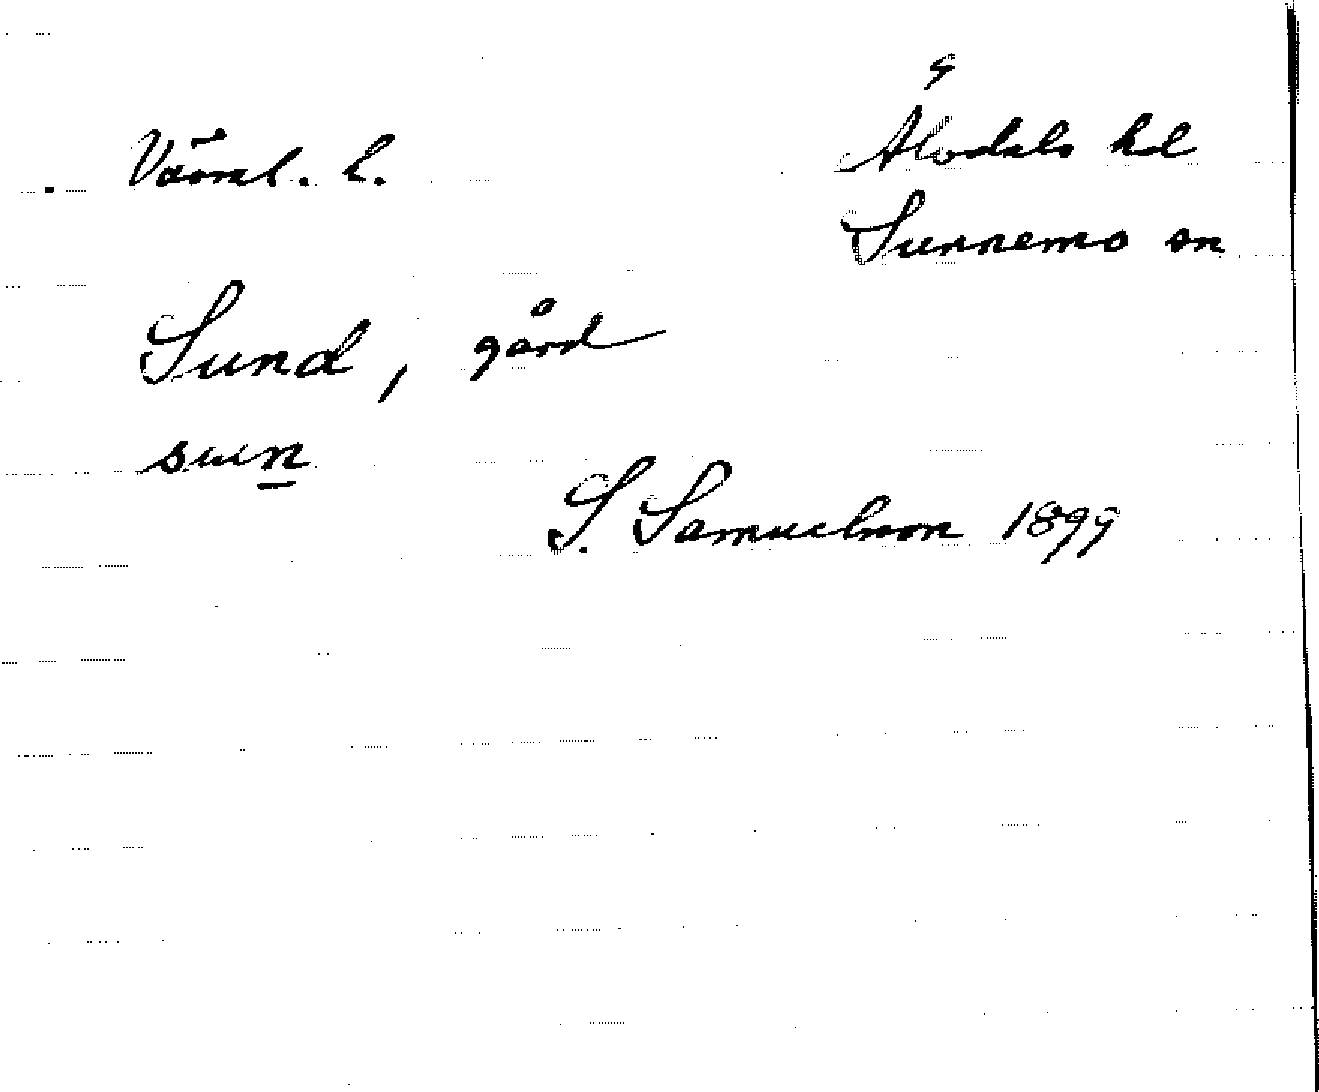 Värml. l.
Älvdals hd
Sunnemo sn
Sund, gård
sun
S. Samuelsson 1899